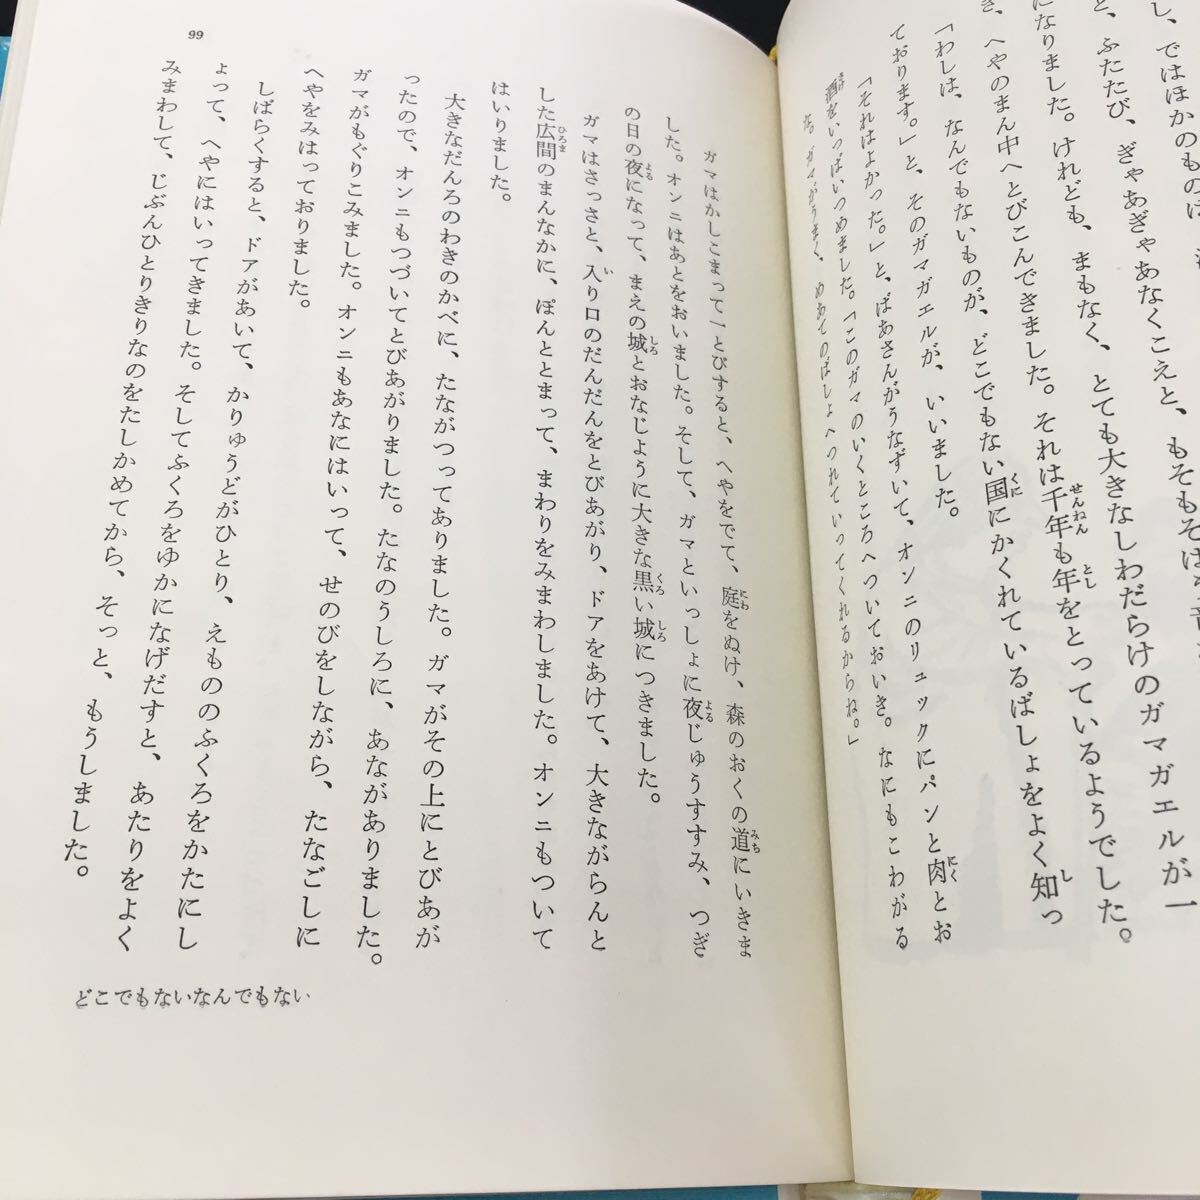 し、ではほかのものに、
と、ふたたび、ぎゃあぎゃあなくこえと、もそもそはう音
になりました。けれども、まもなく、とても大きなしわだらけのガマガエルが一
き、へやのまん中へとびこんできました。それは千年も年をとっているようでした。
「わしは、なんでもないものが、どこでもない国にかくれているばしょをよく知っ
ております。」と、そのガマガエルが、いいました。
「それはよかった。」と、ばあさんがうなずいて、オンニのリュックにパンと肉とお
酒をいっぱいつめました。「このガマのいくところへついておいき。なにもこわがる
な。ガマがうまく、めあてのばしょへつれていってくれるからね。」
ガマはかしこまって一とびすると、へやをでて、庭をぬけ、森のおくの道にいきま
した。オンニはあとをおいました。そして、ガマといっしょに夜じゅうすすみ、つぎ
の日の夜になって、まえの城とおなじように大きな黒い城につきました。
ガマはさっさと、入り口のだんだんをとびあがり、ドアをあけて、大きながらんと
した広間のまんなかに、ぽんととまって、まわりをみまわしました。オンニもついて
はいりました。
大きなだんろのわきのかべに、たながつってありました。ガマがその上にとびあが
ったので、オンニもつづいてとびあがりました。たなのうしろに、あながありました。
ガマがもぐりこみました。オンニもあなにはいって、せのびをしながら、たなごしに
へやをみはっておりました。
しばらくすると、ドアがあいて、かりゅうどがひとり、えもののふくろをかたにし
ょって、へやにはいってきました。そしてふくろをゆかになげだすと、あたりをよく
みまわして、じぶんひとりきりなのをたしかめてから、そっと、もうしました。
どこでもないなんでもない
99